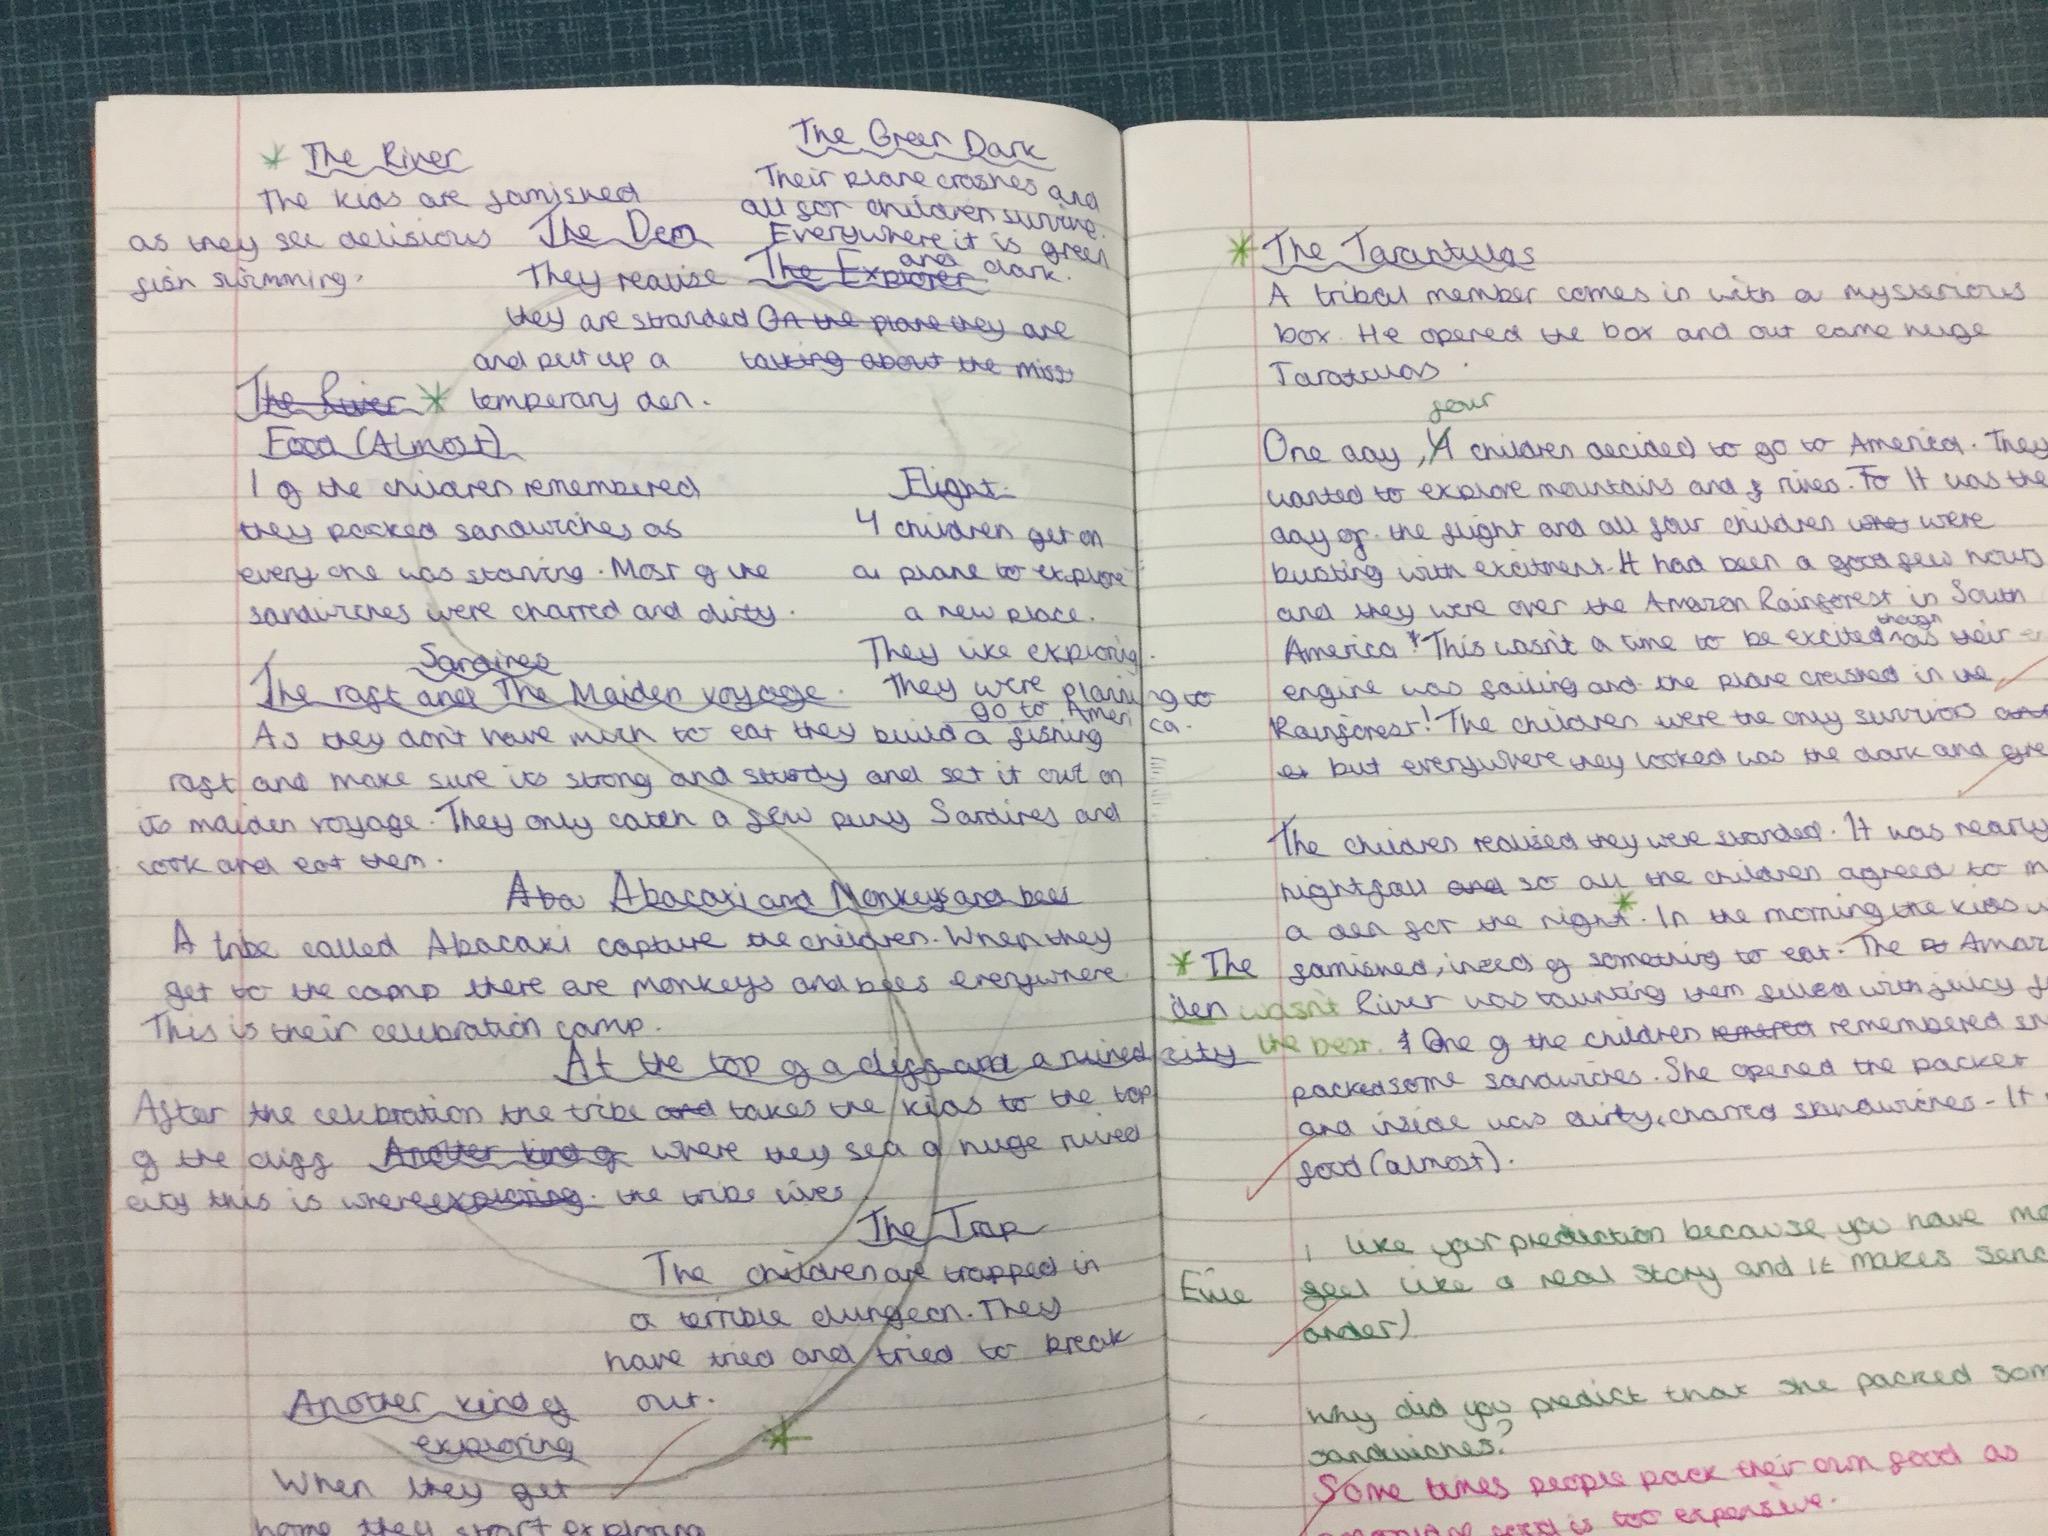 The River
the kids are famished
as they see delisious
fish swimming.
The Green Dark
Their plane crashes and
all for children survive.
Everywhere it is green
and dark.
The Den
They realise
they are stranded
and put up a
temperary den.
The Explorer
On the plane they are
talking about the miss
The River
Food (Almost)
1 of the children remembered
they packed sandwiches as
every one was starving. Most of the
sandwiches were charred and dirty.
Flight
4 children get on
a plane to explore
a new place.
They like exploring.
They were planing to
go to America.
Sardines
The raft and The Maiden voyage.
As they don't have much to eat they build a fishing
raft and make sure its strong and sturdy and set it out on
its maiden voyage. They only catch a few puny Sardines and
cook and eat them.
Aba Abacaxi and Monkeys and bees
A tribe called Abacaxi capture the children. When they
get to the camp there are monkeys and bees everywhere
This is their celebration camp.
At the top of a cliff and a ruined city
After the celebration the tribe and takes the kids to the top
of the cliff Another kind of where they sea a huge ruined
city this is where exploring. the tribe lives
The Trap
The children are trapped in
a terrible dungeon. They
have tried and tried to break
out.
Another kind of
exploring
When they get
home they start exploring
The Tarantulas
A tribal member comes in with a mysterious
box. He opened the box and out came huge
Taratulas.
four
One day, 4 children decided to go to America. They
wanted to explore mountains and rives. It was the
day of the flight and all four children were
busting with excitment. It had been a good few hours
and they were over the Amazon Rainforest in South
though
America! This wasn't a time to be excited as their
engine was failing and the plane crashed in the
Rainforest! The children were the only survivors
but everywhere they looked was the dark and
The children realised they were stranded. It was nearly
nightfall and so all the children agreed to
a den for the night. In the morning the kids
famished, in need of something to eat. The
River was taunting them filled with juicy
The
den wasn't
the best.
One of the children remembered
packed some sandwiches. She opened the packet
and inside was dirty, charred sandwiches. It
food (almost).
I like your prediction because you have
feel like a real story and it makes
order)
Why did you predict that she packed
sandwiches?
Some times people pack their own food as
food is too expensive.